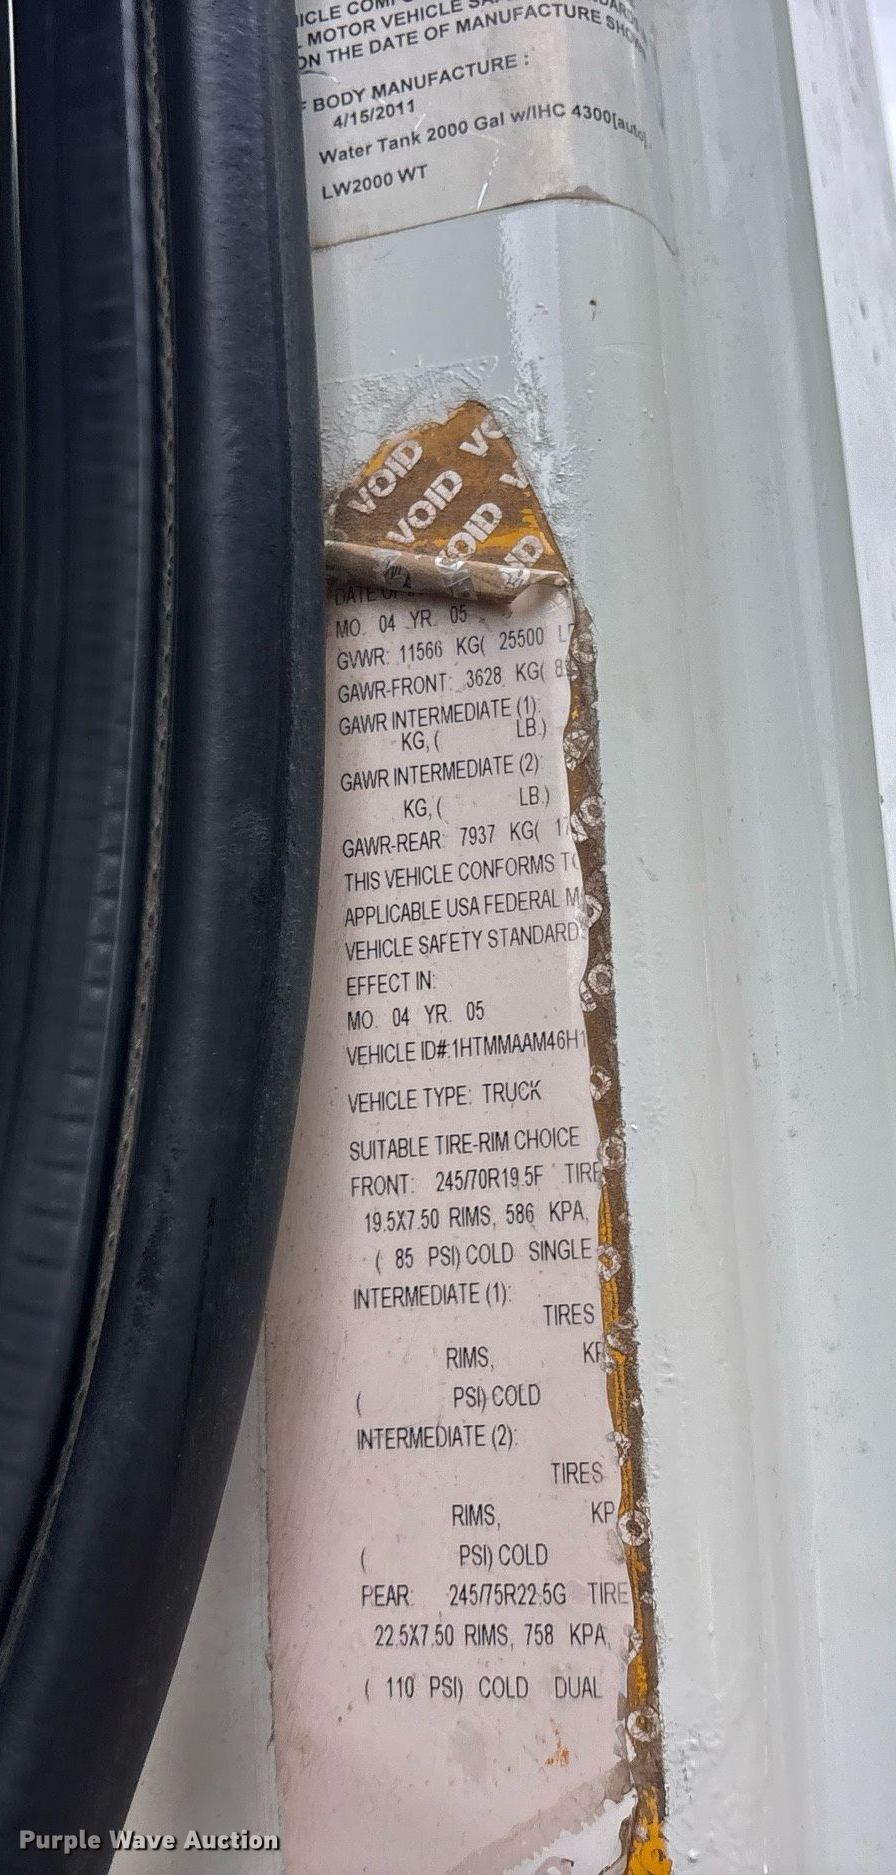 MOTOR VEHICLE
ON THE DATE OF MANUFACTURE
BODY MANUFACTURE :
4/15/2011
Water Tank 2000 Gal w/IHC 4300[auto]
LW2000 WT
VOID
VOID
VOID
MO. 04 YR. 05
GVWR: 11566 KG( 25500
GAWR-FRONT: 3628 KG(
GAWR INTERMEDIATE (1):
KG, ( LB.)
GAWR INTERMEDIATE (2):
KG, ( LB.)
GAWR-REAR: 7937 KG(
THIS VEHICLE CONFORMS
APPLICABLE USA FEDERAL
VEHICLE SAFETY STANDARD
EFFECT IN:
MO. 04 YR. 05
VEHICLE ID#:1HTMMAAM46H1
VEHICLE TYPE: TRUCK
SUITABLE TIRE-RIM CHOICE
FRONT: 245/70R19.5F TIRE
19.5X7.50 RIMS, 586 KPA,
( 85 PSI) COLD SINGLE
INTERMEDIATE (1):
TIRES
RIMS,
( PSI) COLD
INTERMEDIATE (2):
TIRES
RIMS, KP
( PSI) COLD
REAR: 245/75R22.5G TIRE
22.5X7.50 RIMS, 758 KPA,
( 110 PSI) COLD DUAL
Purple Wave Auction